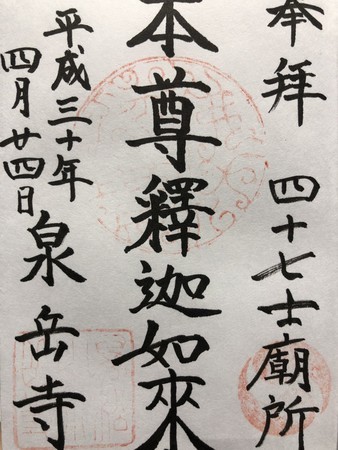 奉拝 四十七士廟所
本尊釋迦如來
平成三十年
四月廿四日
泉岳寺